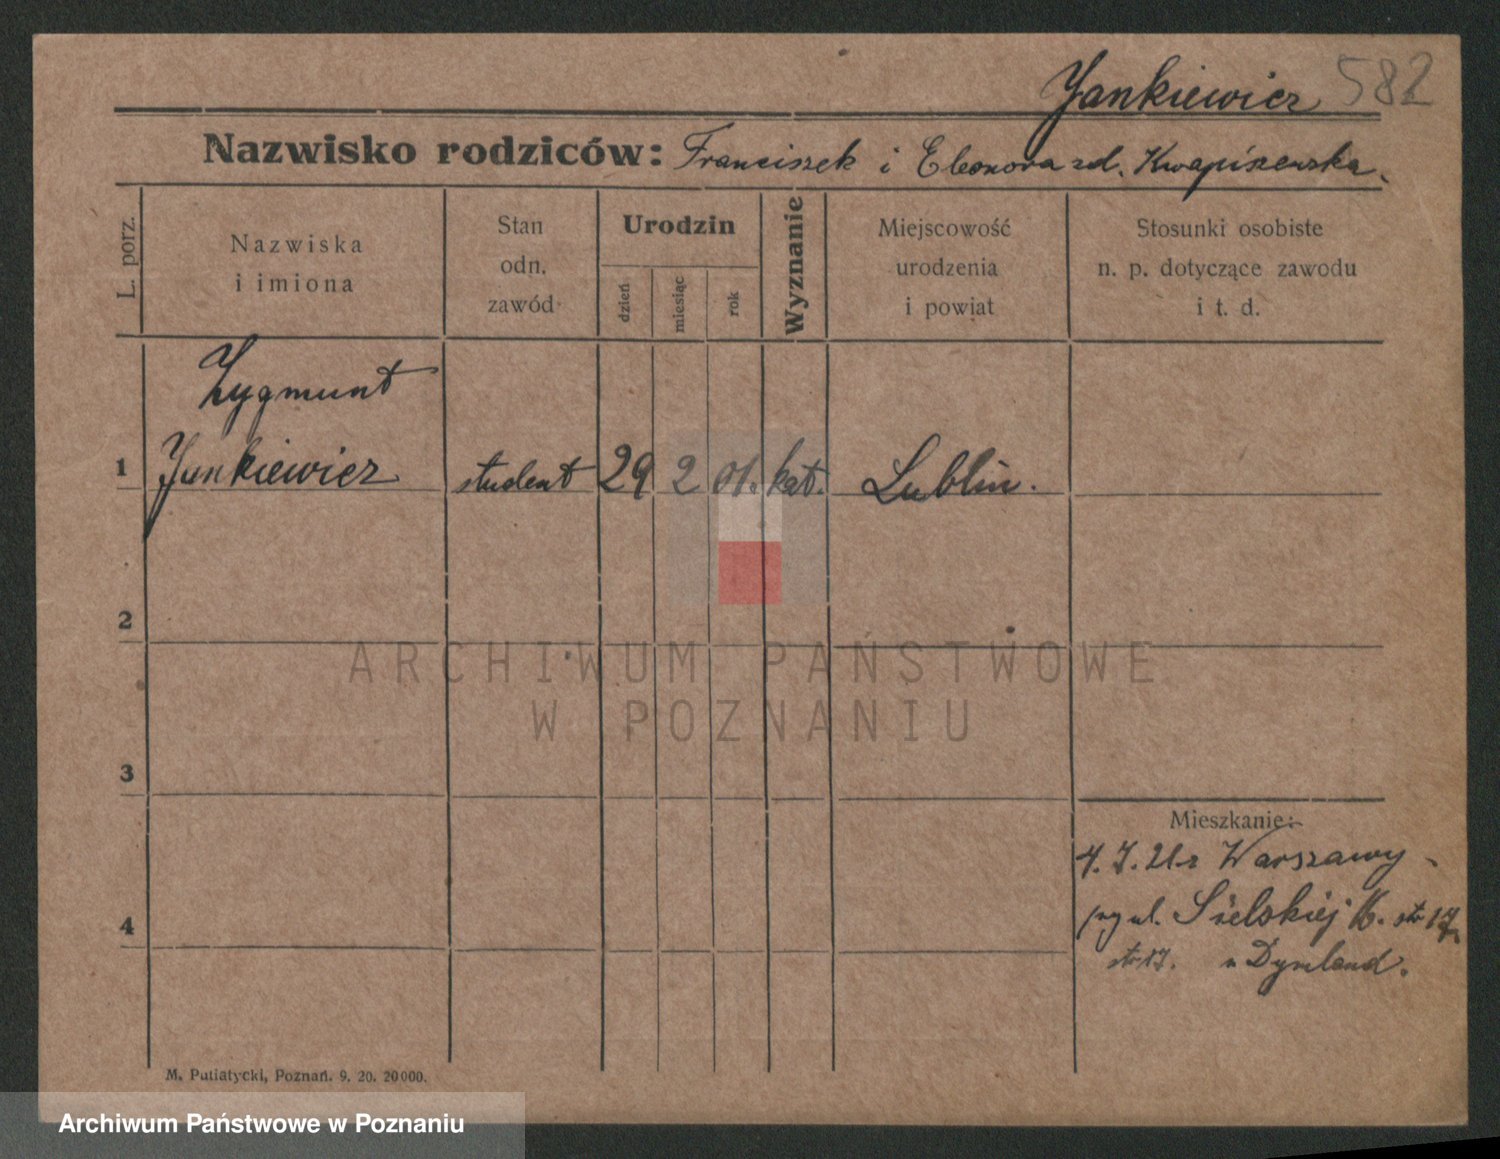 Jankiewicz 582
Nazwisko rodziców: Franciszek i Eleonora zd. Kwapiszewska.
L. porz.
Nazwiska
i imiona
Stan
odn.
zawód
Urodzin
dzień
miesiąc
rok
Wyznanie
Miejscowość
urodzenia
i powiat
Stosunki osobiste
n. p. dotyczące zawodu
i t. d.
Zygmunt
1 Jankiewicz student 29 2 01. kat. Lublin.
2
ARCHIWUM PAŃSTWOWE
W POZNANIU
3
Mieszkanie:
Warszawy
ul. Sielskiej
4
M. Putiatycki, Poznań. 9. 20. 20000.
Archiwum Państwowe w Poznaniu